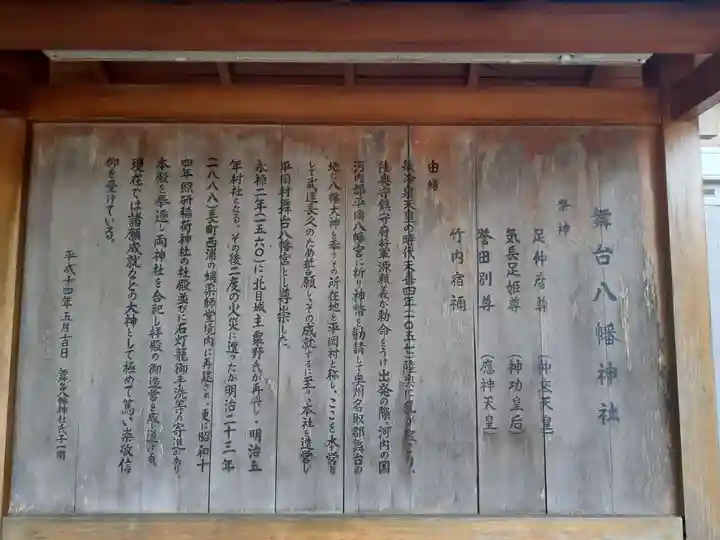 舞台八幡神社
祭神
足仲彦尊　（仲哀天皇）
気長足姫尊　（神功皇后）
誉田別尊　（應神天皇）
竹内宿禰
由緒
後冷泉天皇の時代永喜四年（一〇五七）陸奥に乱が起こり、
陸奥守鎮守府将軍源頼義が勅命をうけ出発の際、河内の国
河内郡平岡八幡宮に祈り神幣を勧請して奥州名取郡舞台の
地に八幡大神を奉りその所在地を平岡村と称し、ここを本営と
して武運長久のため祈願し、その成就するに至り本社を造営し
平岡村舞台八幡宮とし尊崇した。
永禄二年（一五六〇）に北目城主粟野氏が再興し、明治五
年村社となる。その後二度の火災に遭ったが明治二十三年
（一八八八）長町西浦の蛸薬師堂境内に再建され、更に昭和十
四年照研稲荷神社の社殿並びに石灯籠御手洗等の寄進があり、
本殿を奉遷し両神社を合祀し拝殿の御造営を成し遂げた。
現在では諸願成就などの大神として極めて篤い崇敬信
仰を受けている。
平成十四年五月十吉日　舞台八幡神社氏子一同